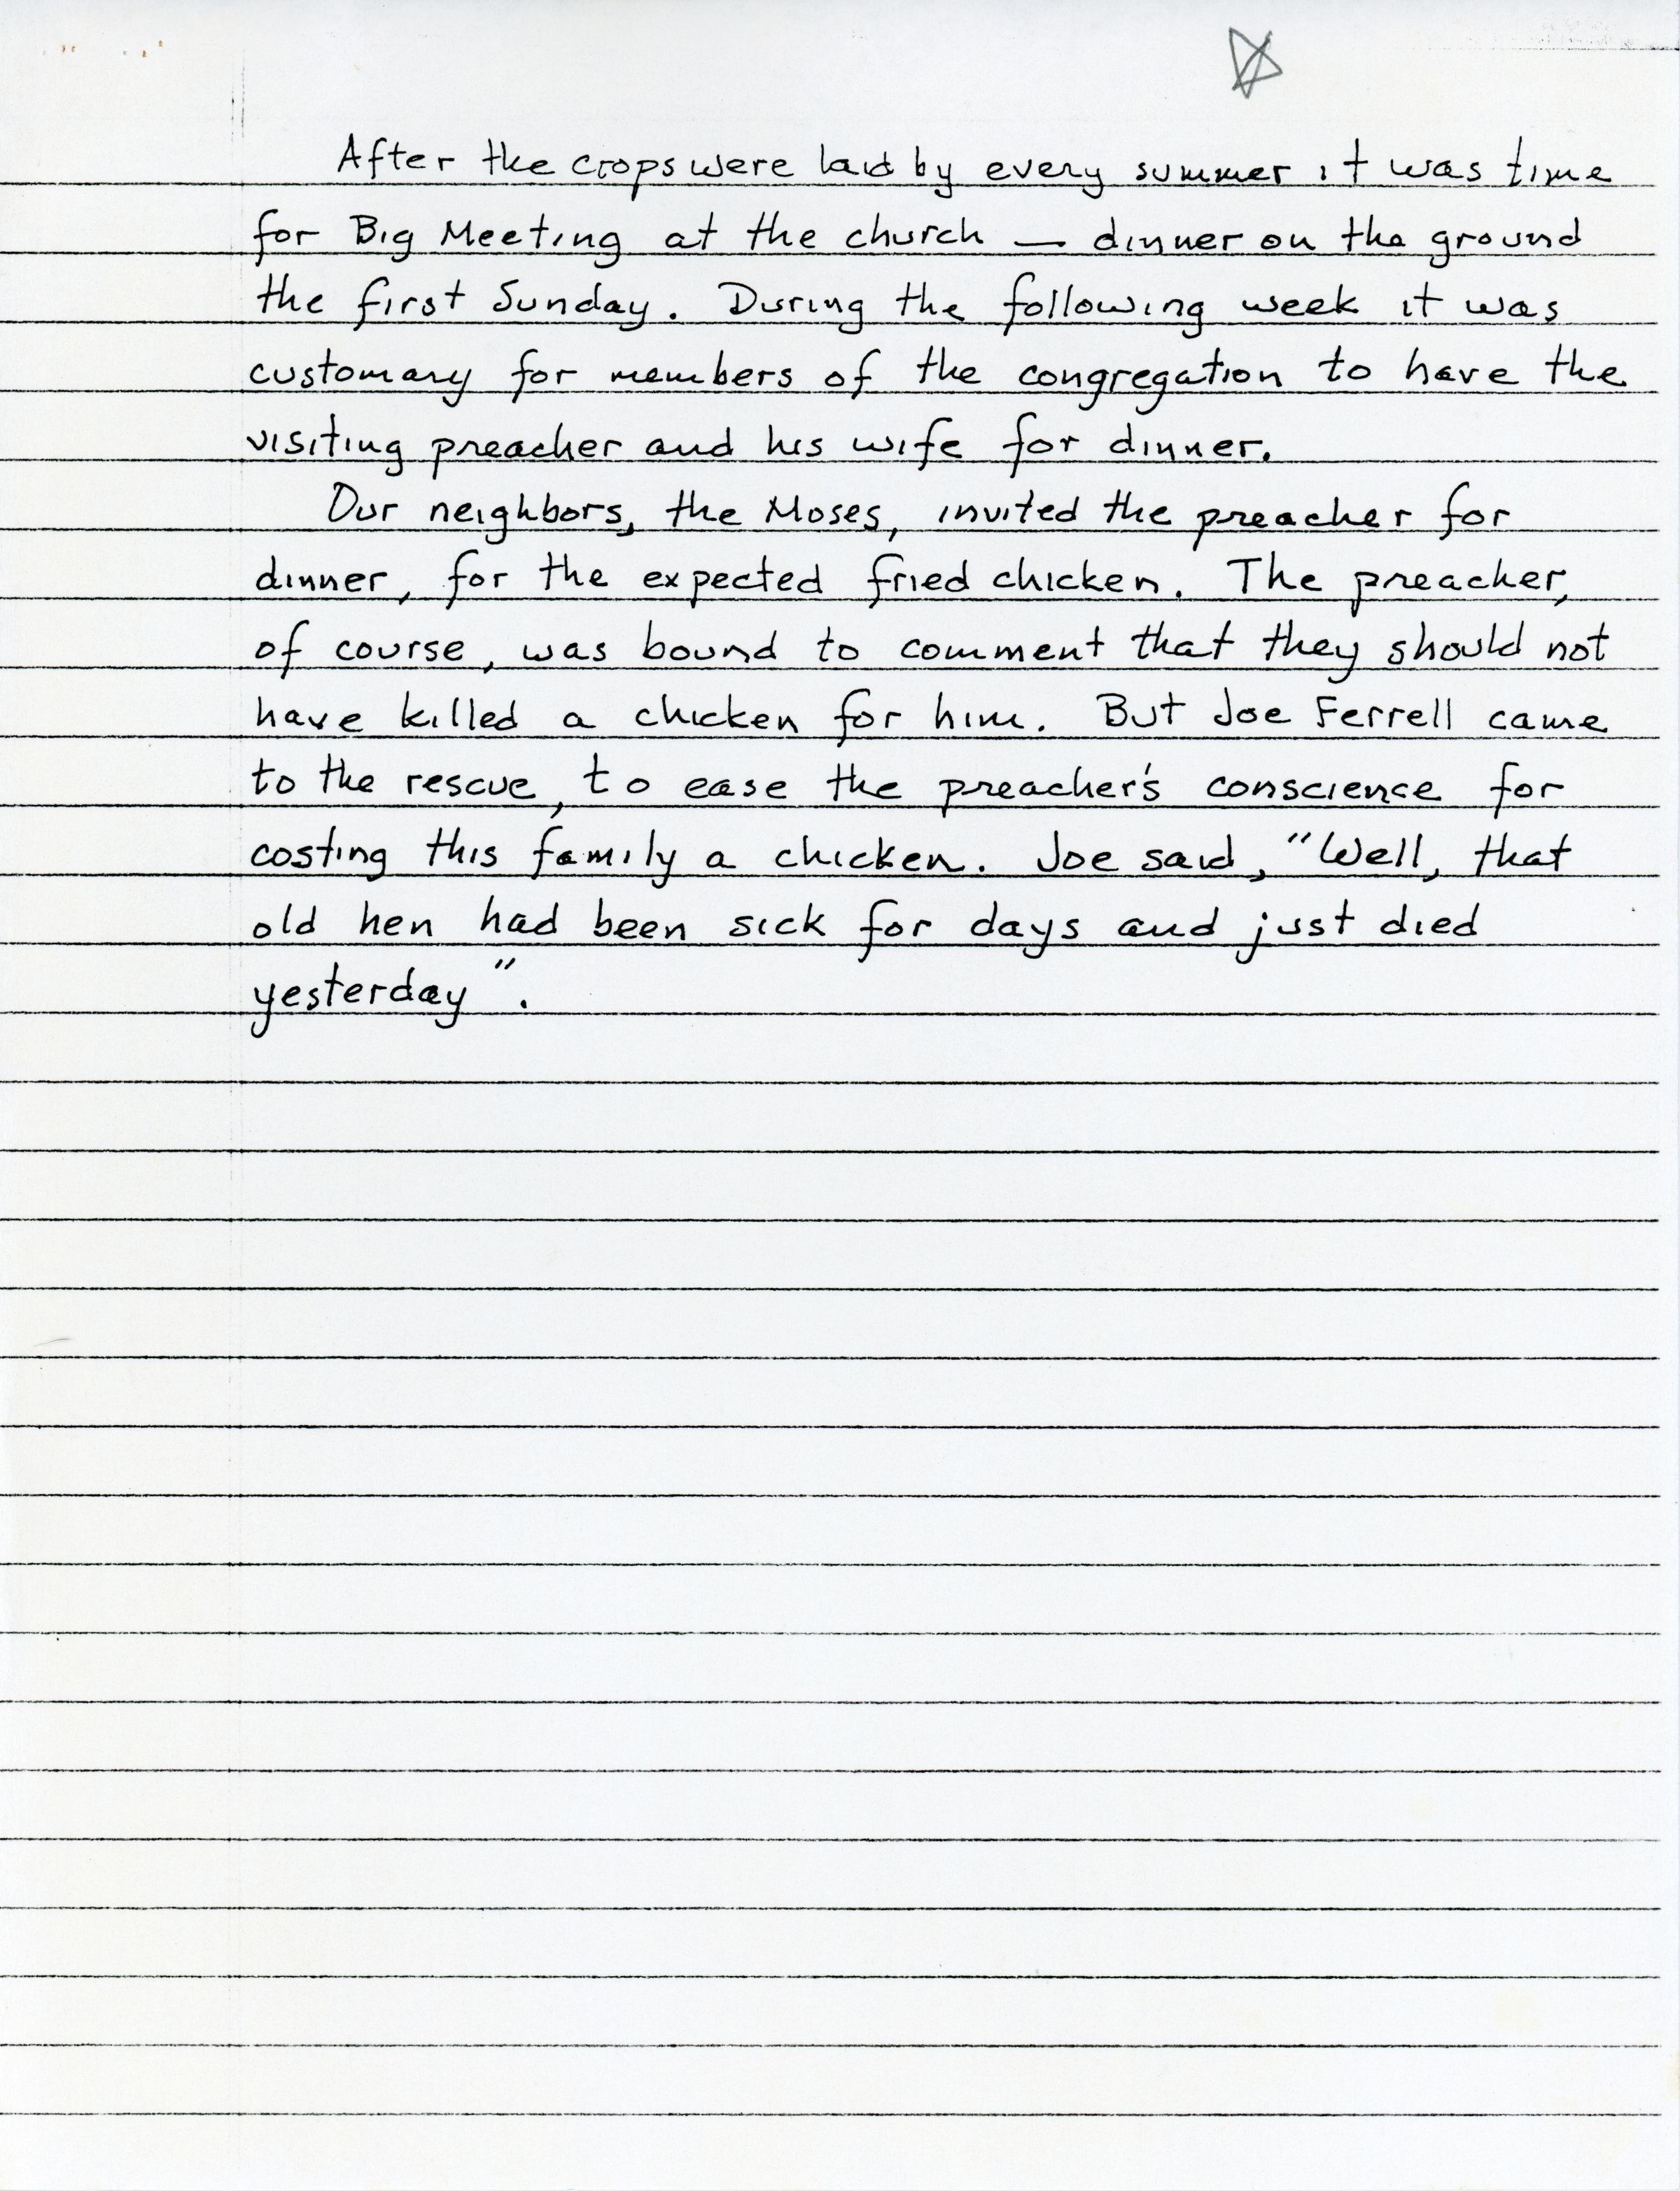 After the crops were laid by every summer it was time
for Big Meeting at the church — dinner on the ground
the first Sunday. During the following week it was
customary for members of the congregation to have the
visiting preacher and his wife for dinner.
Our neighbors, the Moses, invited the preacher for
dinner, for the expected fried chicken. The preacher,
of course, was bound to comment that they should not
have killed a chicken for him. But Joe Ferrell came
to the rescue, to ease the preacher's conscience for
costing this family a chicken. Joe said, "Well, that
old hen had been sick for days and just died
yesterday".